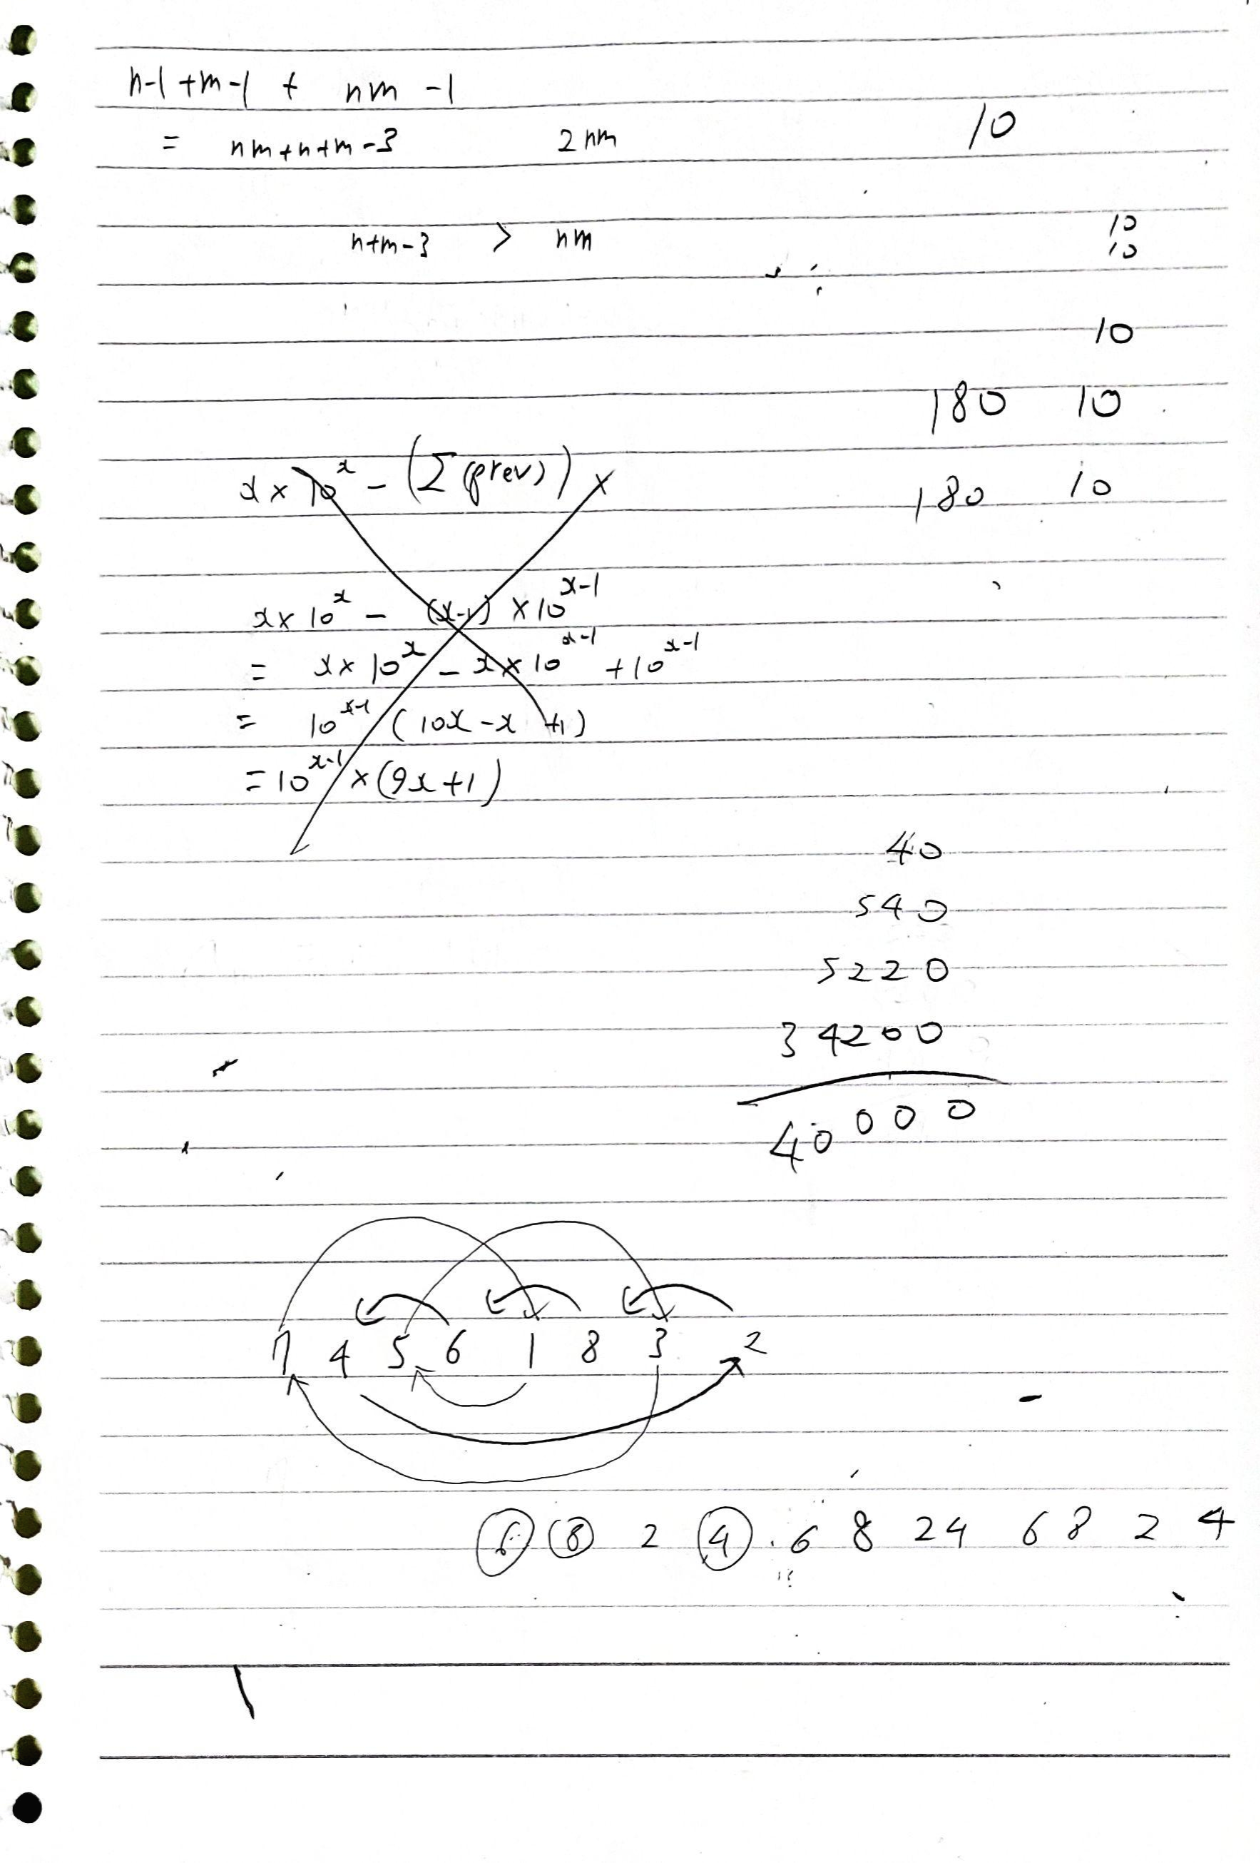 n-1 + m-1 + nm - 1
= nm+n+m-3 2nm 10
n+m-3 > nm 10
10
10
180 10
x × 10^x - (Σ(prev)) ×
180 10
x × 10^x - (x-1) × 10^x-1
= x × 10^x - x × 10^x-1 + 10^x-1
= 10^x-1 (10x - x + 1)
= 10^x-1 × (9x+1)
40
540
5220
34200
40000
7 4 5 6 1 8 3 2
6 8 2 4 6 8 24 6 8 2 4